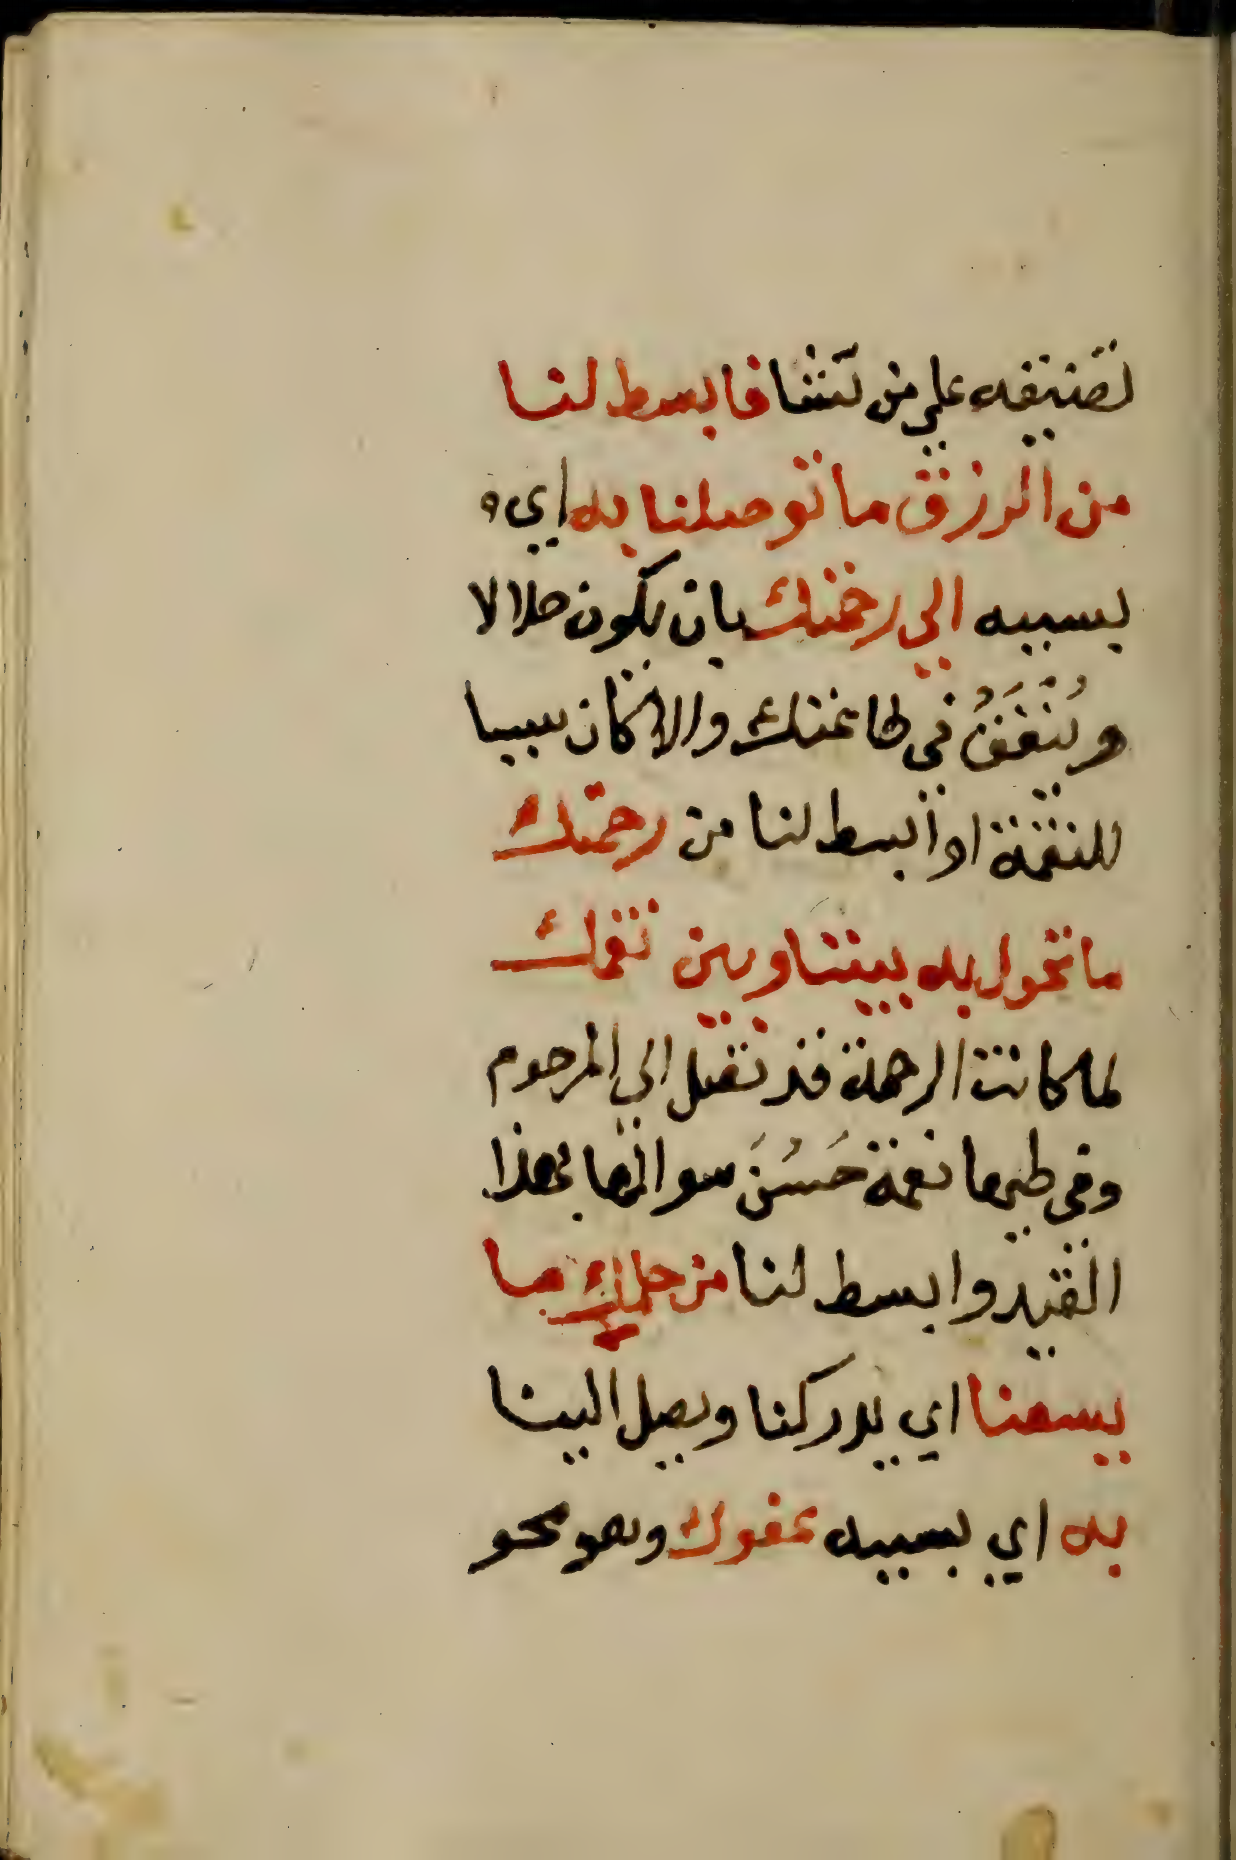 تضييقه علي من تشا فابسط لنا
من الرزق ما توصلنا به اي
بسببه الي رحمتك بان يكون حلالا
وينفق في طاعتك والا كان سببا
للنقمة او ابسط لنا من رحمتك
ما تحول به بيننا وبين نقمك
لما كانت الرحمة قد تقبل الي المرحوم
وفي طيها نقمة حسن سوالها بهذا
القيد وابسط لنا من حلمك ما
يسعنا اي يدركنا ويصل الينا
به اي بسببه عفوك وهو محو